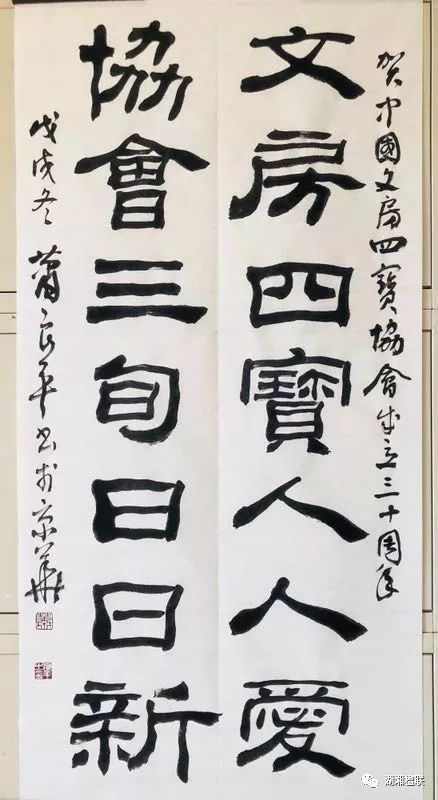 贺中國文房四寶協會成立三十周年
文房四寶人人愛
協會三旬日日新
戊戌冬 蕭良平书於京華
湖湘楹联